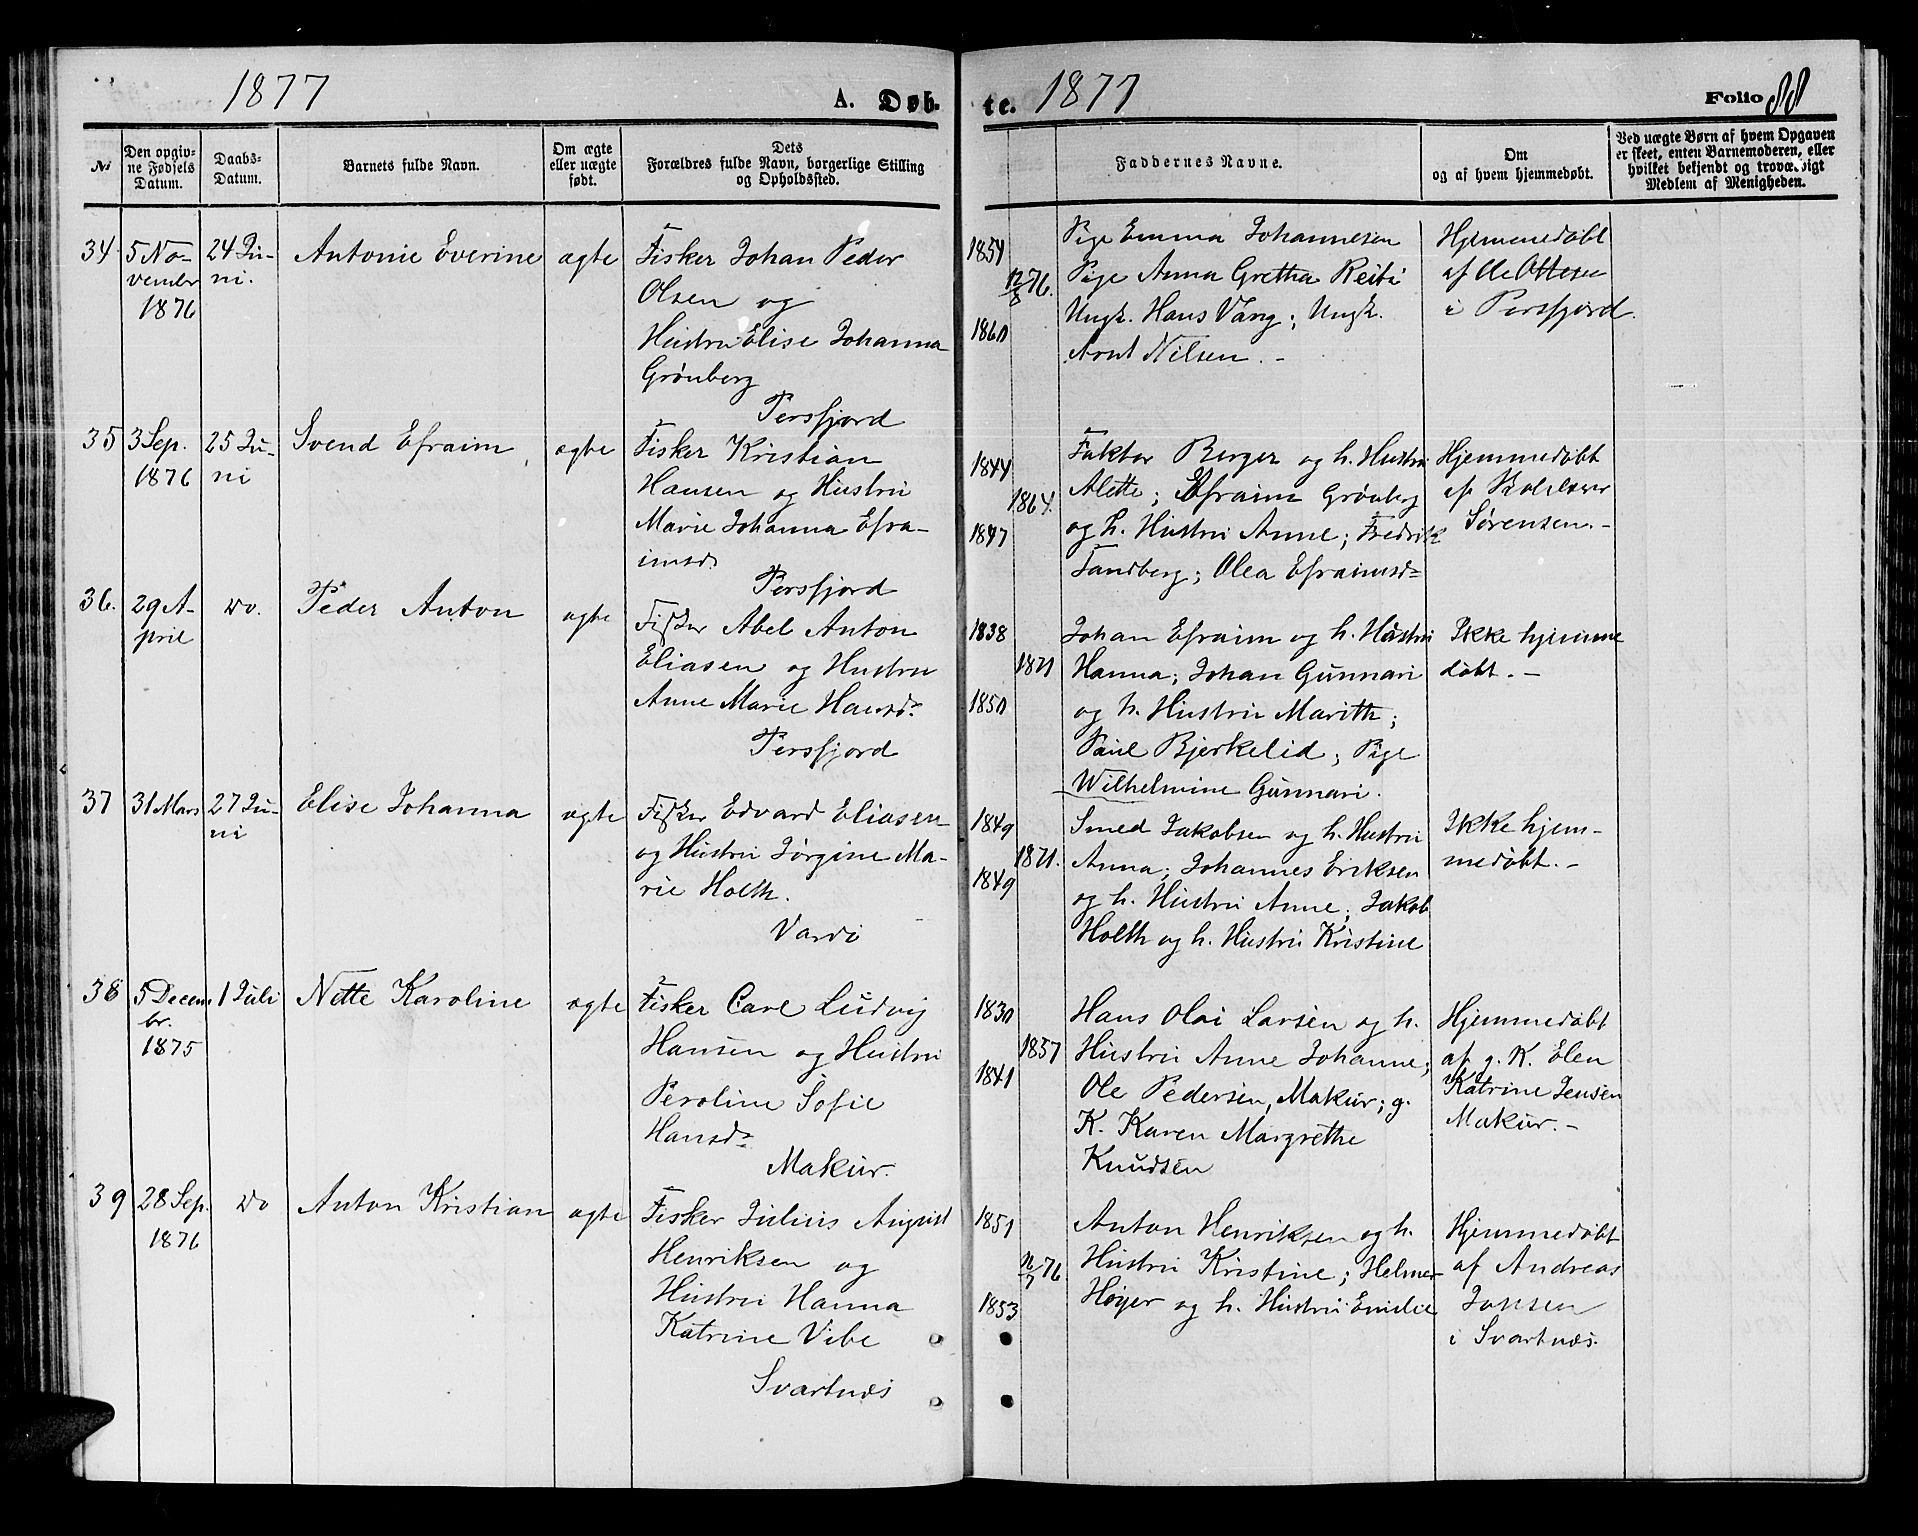 1877
A. Døb-
№
Den opgiv-
ne Fødsels
Datum.
Daabs-
Datum.
Barnets fulde Navn.
Om ægte
eller uægte
født.
Dets
Forældres fulde Navn, borgerlige Stilling
og Opholdssted.
34
5 No-
vembr
1876
24 Ju-
ni.
Antonie Everine
ægte
Fisker Johan Peder
Olsen og
Hustru Elise Johanna
Grønberg
Persfjord
35
3 Sep.
1876
25 Ju-
ni
Svend Efraim
ægte
Fisker Kristian
Hansen og Hustru
Marie Johanna Efra-
imsd.
Persfjord
36.
29 A-
pril
do.
Peder Anton
ægte
Fisker Abel Anton
Eliasen og Hustru
Anne Marie Hansd.
Persfjord
37
31 Mars
27 Ju-
ni
Elise Johanna
ægte
Fisker Edvard Eliasen
og Hustru Jørgine Ma-
rie Holth.
Vardø
38
5 Decem
br.
1875
1 Juli
Nette Karoline
ægte
Fisker Carl Ludvig
Hansen og Hustru
Peroline Sofie
Hansd.
Makur.
39
28 Sep.
1876
do
Anton Kristian
ægte
Fisker Julius August
Henriksen og
Hustru Hanna
Katrine Vibe
Svartnæs
te.
1877
Folio 88
Faddernes Navne.
Om
og af hvem hjemmedøbt.
Ved uægte Børn af hvem Opgaven
er skeet, enten Barnemoderen, eller
hvilket bekjendt og troværdigt
Medlem af Menigheden.
1854
12/8 76.
1860
Pige Emma Johannesen
Pige Anna Gretha Reiti
Ungk. Hans Vang; Ungk.
Arnt Nilsen. -
Hjemmedøbt
af Ole Ottesen
i Persfjord.
1844
1864.
1847
Faktor Berger og h. Hustru
Alette; Efraim Grønberg
og h. Hustru Anne; Fredrik
Tandberg; Olea Efraimsd.
Hjemmedøbt
af
Sørensen. -
1838
1871
1850
Johan Efraim og h. Hustru
Hanna; Johan Gunnari
og h. Hustru Marith;
Paul Bjerkelid; Pige
Wilhelmine Gunnari.
Ikke hjemme
døbt. -
1849
1871.
1849
Smed Jakobsen og h. Hustru
Anna; Johannes Eriksen
og h. Hustru Anne; Jakob
Holth og h. Hustru Kristine
Ikke hjem-
medøbt. -
1830
1857
1841
Hans Olai Larsen og h.
Hustru Anne Johanne;
Ole Pedersen, Makur; g.
K. Karen Margrethe
Knudsen
Hjemmedøbt
af g. K. Elen
Katrine Jensen
Makur. -
1851
16/7 76
1853
Anton Henriksen og h.
Hustru Kristine; Helmer
Høyer og h. Hustru Emilie
Hjemmedøbt
af Andreas
Jonsen
i Svartnæs.